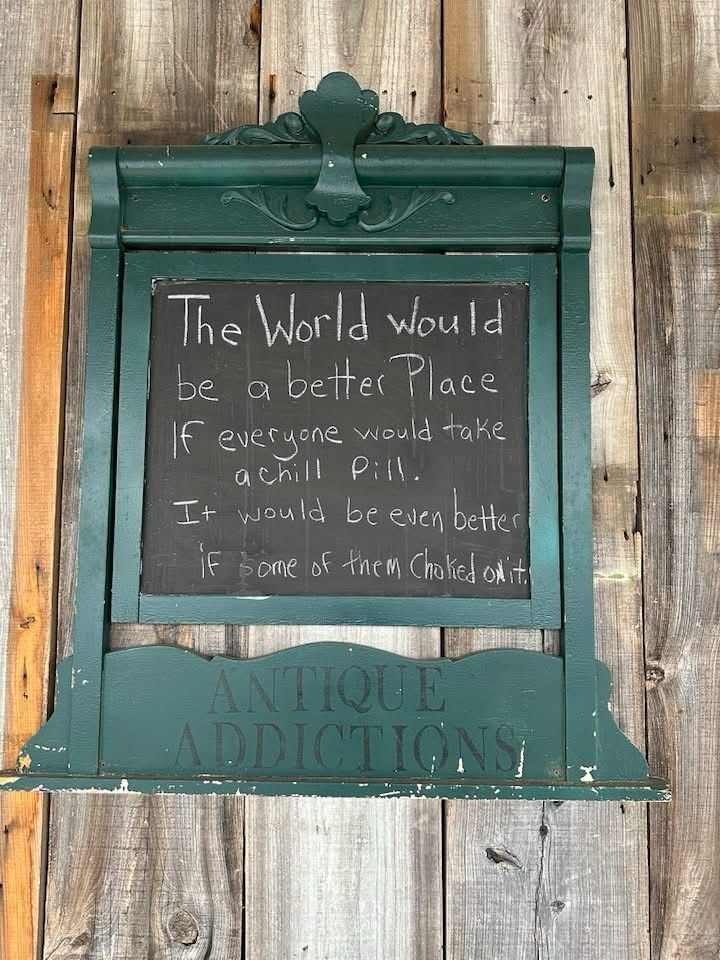 The World would
be a better Place
IF everyone would take
a chill Pill.
It would be even better
iF some of them Choked on it.
ANTIQUE
ADDICTIONS